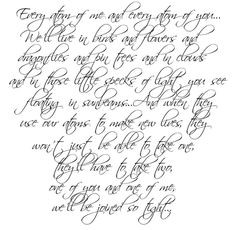 Every atom of me and every atom of you...
We'll live in birds and flowers and
dragonflies and pin trees and in clouds
and in those little specks of light you see
floating in sunbeams...And when they
use our atoms to make new lives, they
won't just be able to take one,
they'll have to take two,
one of you and one of me,
we'll be joined so tight...